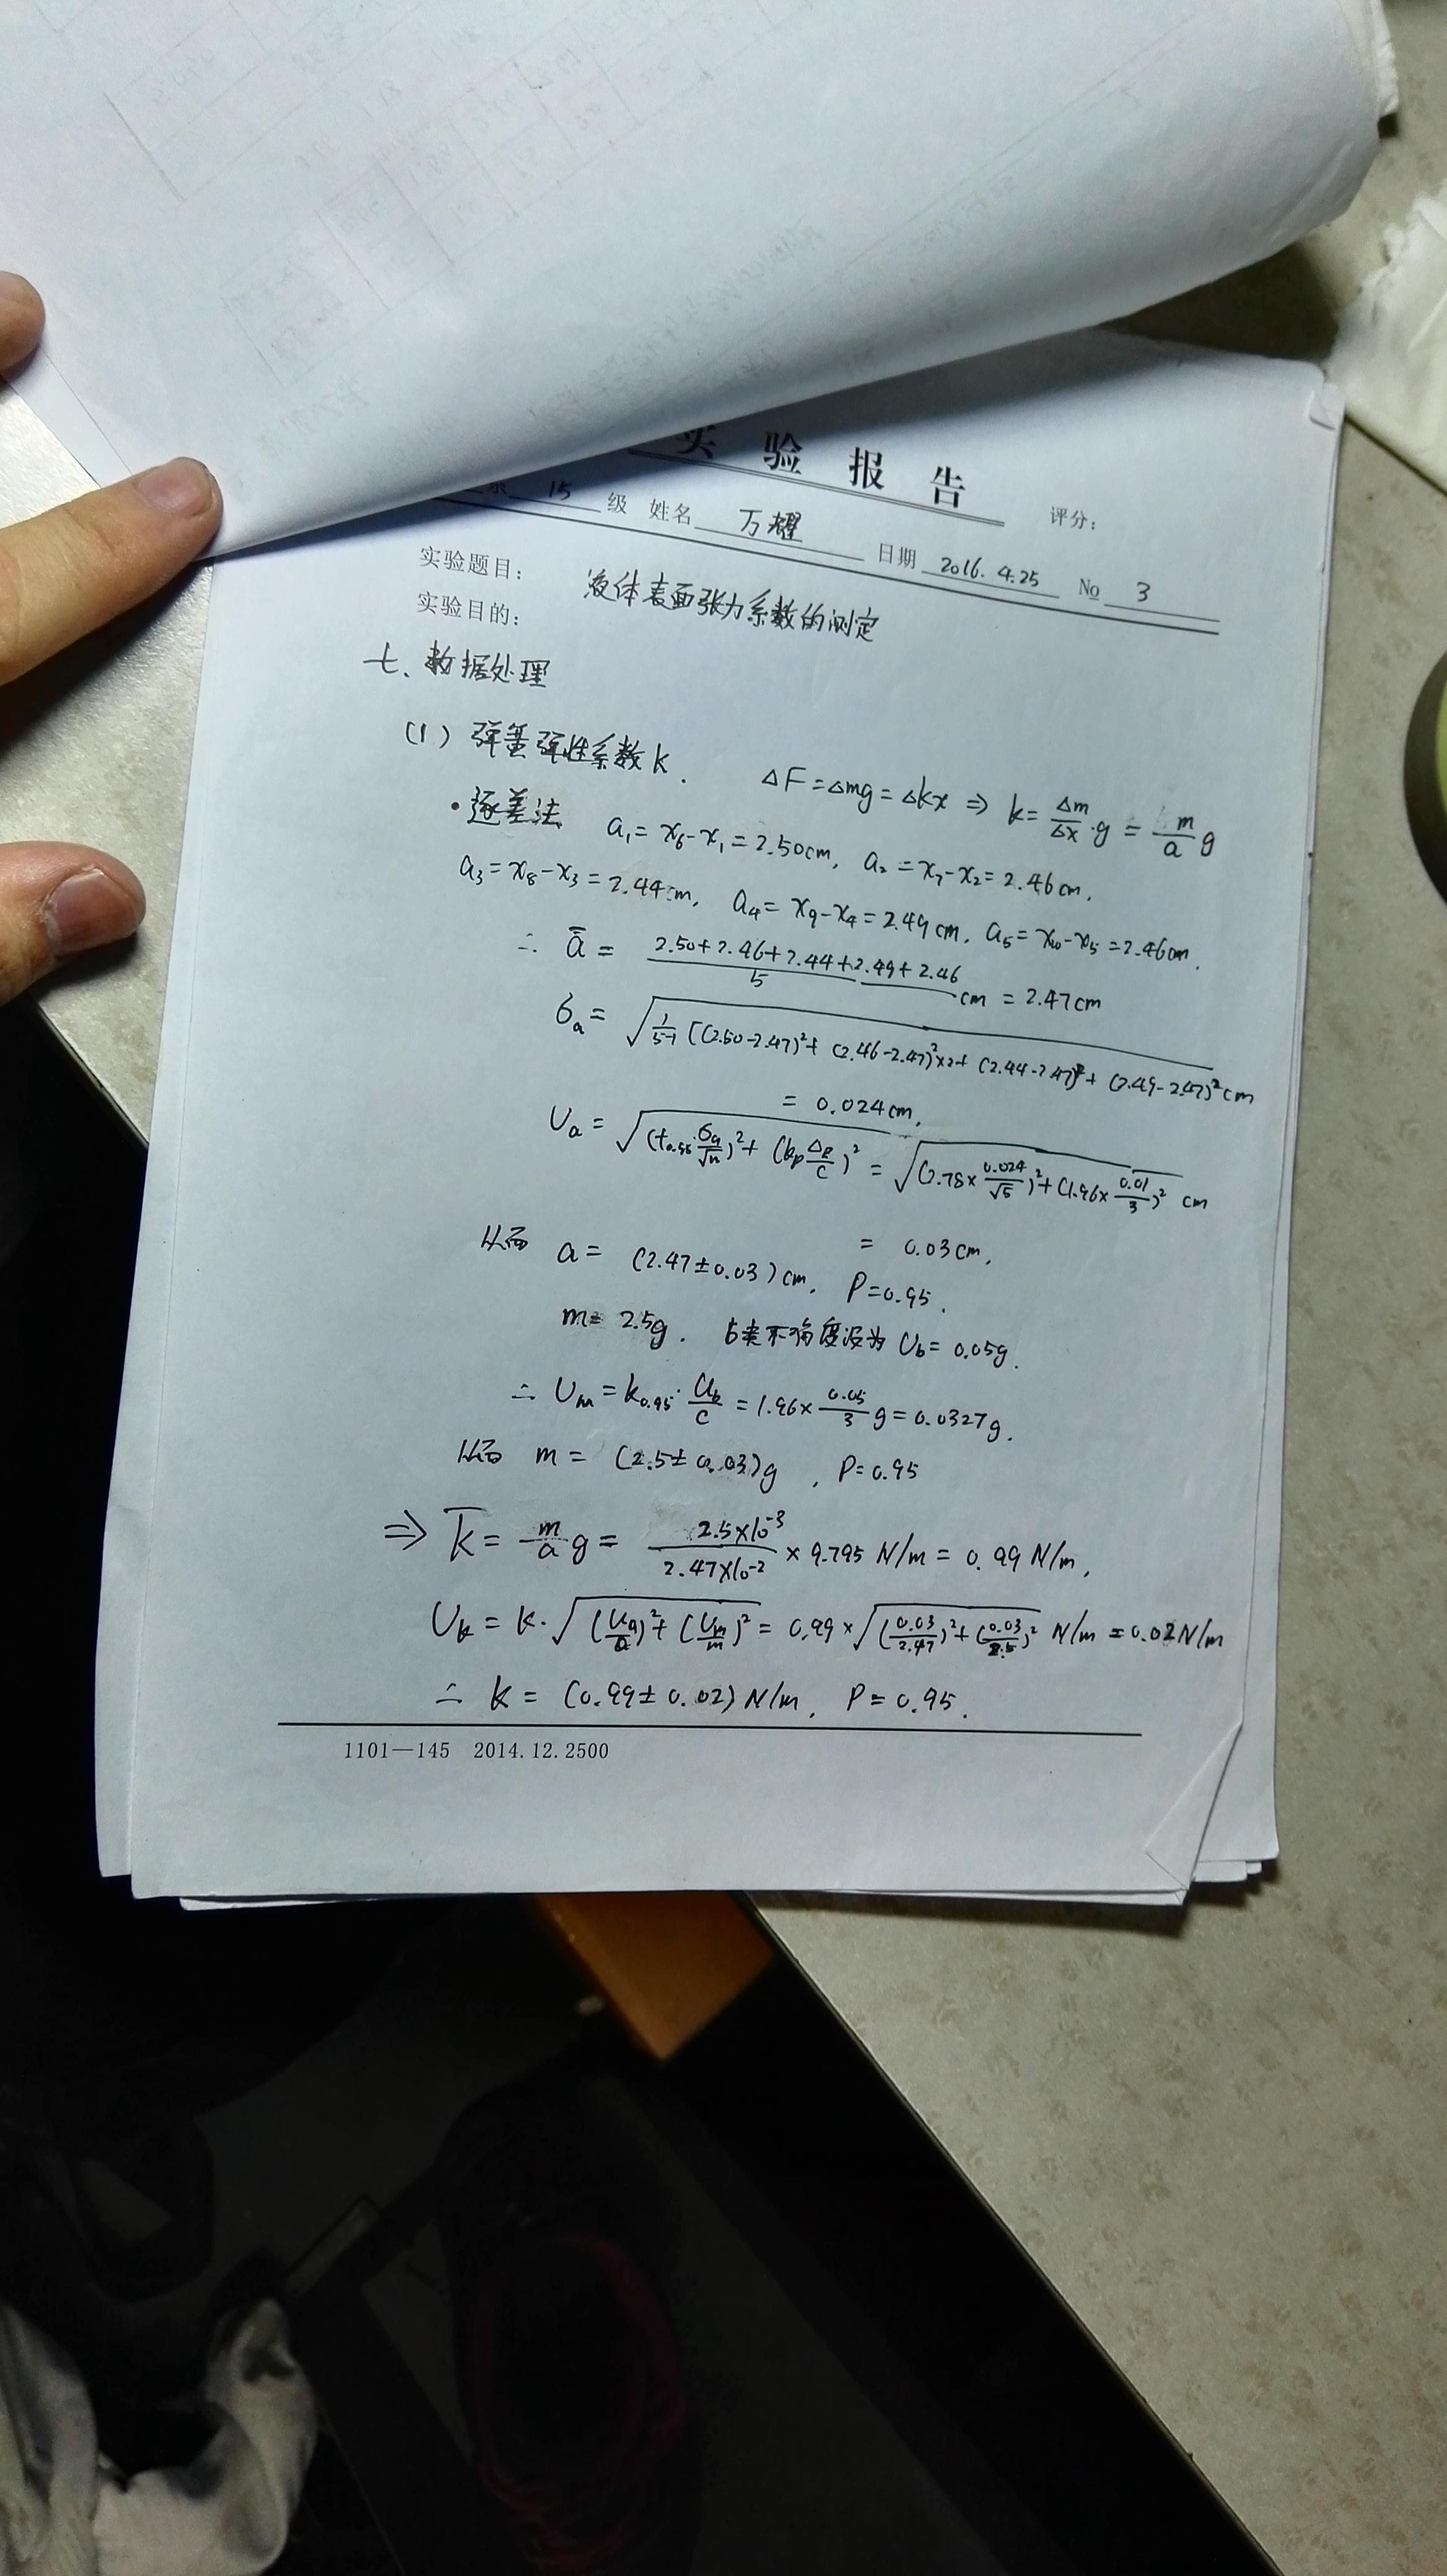 实验报告
评分:
系 15 级 姓名 万耀 日期 2016.4.25 № 3
实验题目: 液体表面张力系数的测定
实验目的:
七、数据处理
(1) 弹簧弹性系数k. ΔF=Δmg=Δkx ⇒ k=Δm/Δx·g = m/a g
·逐差法 a₁=x₆-x₁=2.50cm, a₂=x₇-x₂=2.46cm,
a₃=x₈-x₃=2.44cm, a₄=x₉-x₄=2.49cm, a₅=x₁₀-x₅=2.46cm.
∴ ā = (2.50+2.46+2.44+2.49+2.46)/5 cm = 2.47cm
σₐ = √(1/(5-1) [(2.50-2.47)²+(2.46-2.47)²×2+(2.44-2.47)²+(2.49-2.47)² cm
= 0.024cm,
Uₐ = √((t₀.₉₅·σₐ/√n)²+(kₚ Δ/C)²) = √((2.78×0.024/√5)²+(1.96×0.01/3)²) cm
= 0.03cm,
从而 a = (2.47±0.03)cm, P=0.95.
m= 2.5g. b类不确度设为 U_b=0.05g.
∴ Uₘ=k₀.₉₅·U_b/C=1.96×0.05/3 g=0.0327g.
从而 m = (2.5±0.03)g, P=0.95
⇒ k̄ = m/a g = (2.5×10⁻³)/(2.47×10⁻²) × 9.795 N/m = 0.99 N/m,
U_k = k·√((Uₐ/a)²+(Uₘ/m)²) = 0.99×√((0.03/2.47)²+(0.03/2.5)²) N/m = 0.02N/m
∴ k = (0.99±0.02) N/m, P=0.95.
1101—145 2014.12.2500